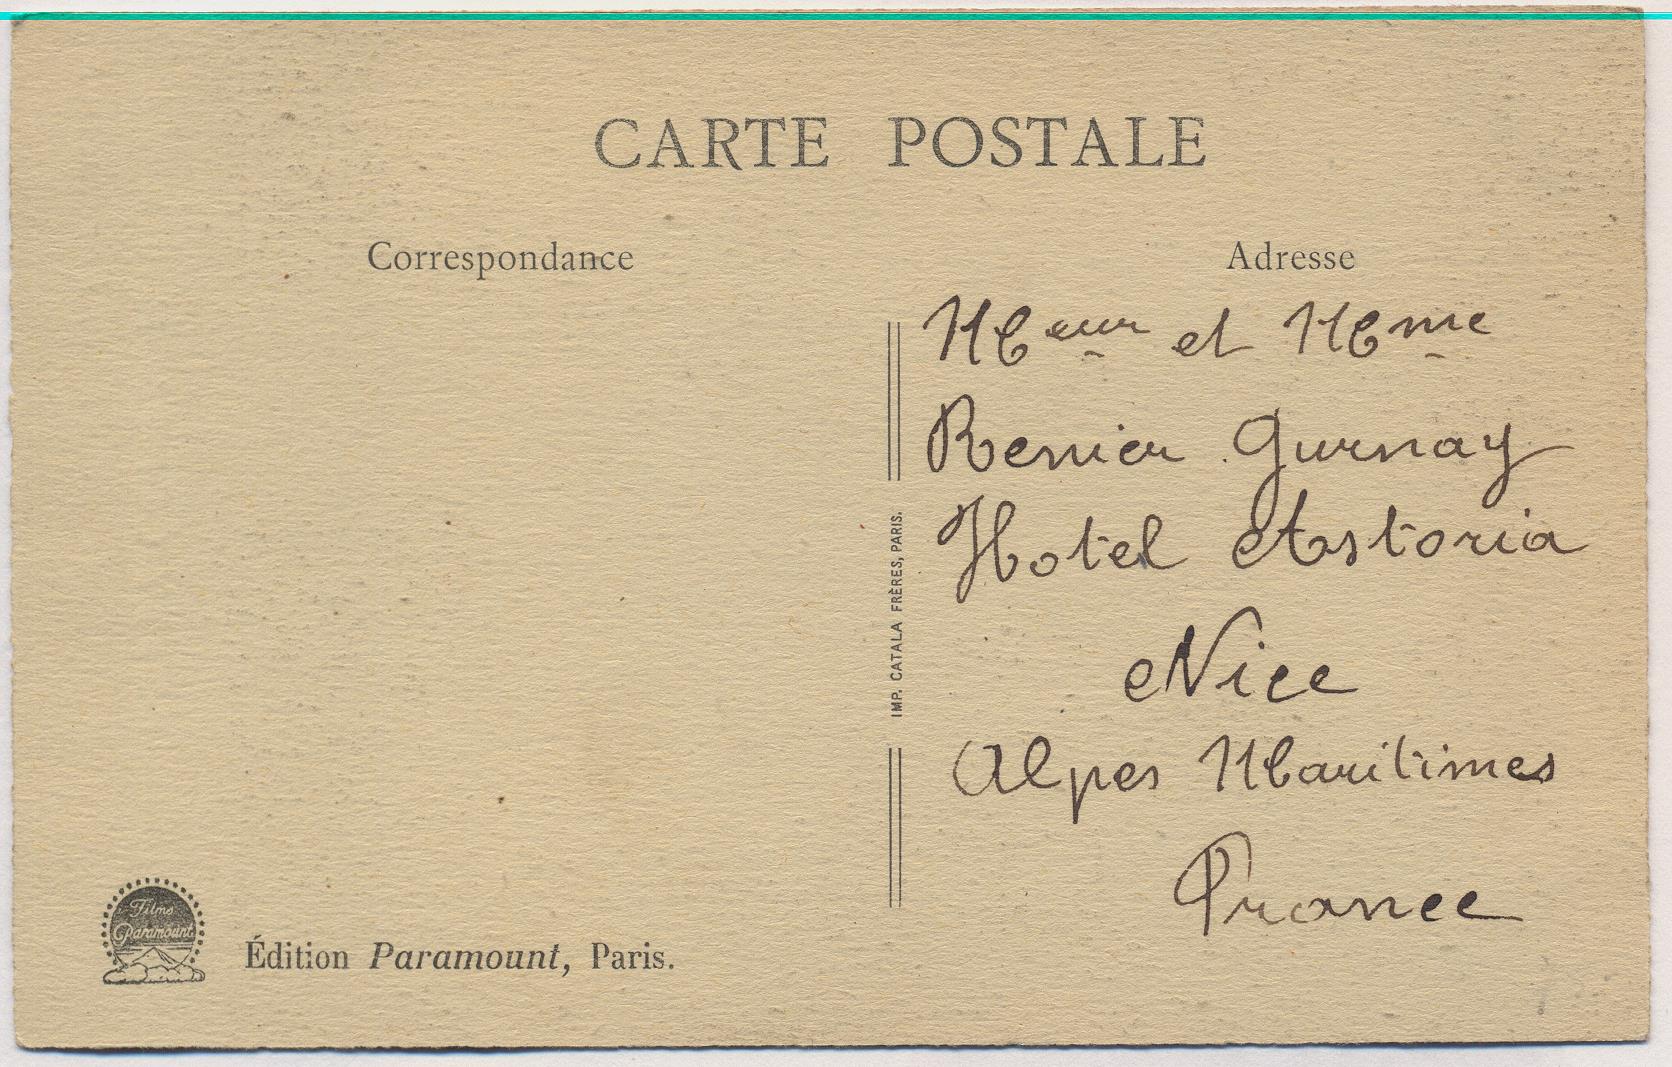 CARTE POSTALE
Correspondance
Adresse
Meur et Mme
Renier Gurnay
Hotel Astoria
Nice
Alpes Maritimes
France
IMP. CATALA FRÈRES, PARIS.
Films
Paramount
Édition Paramount, Paris.